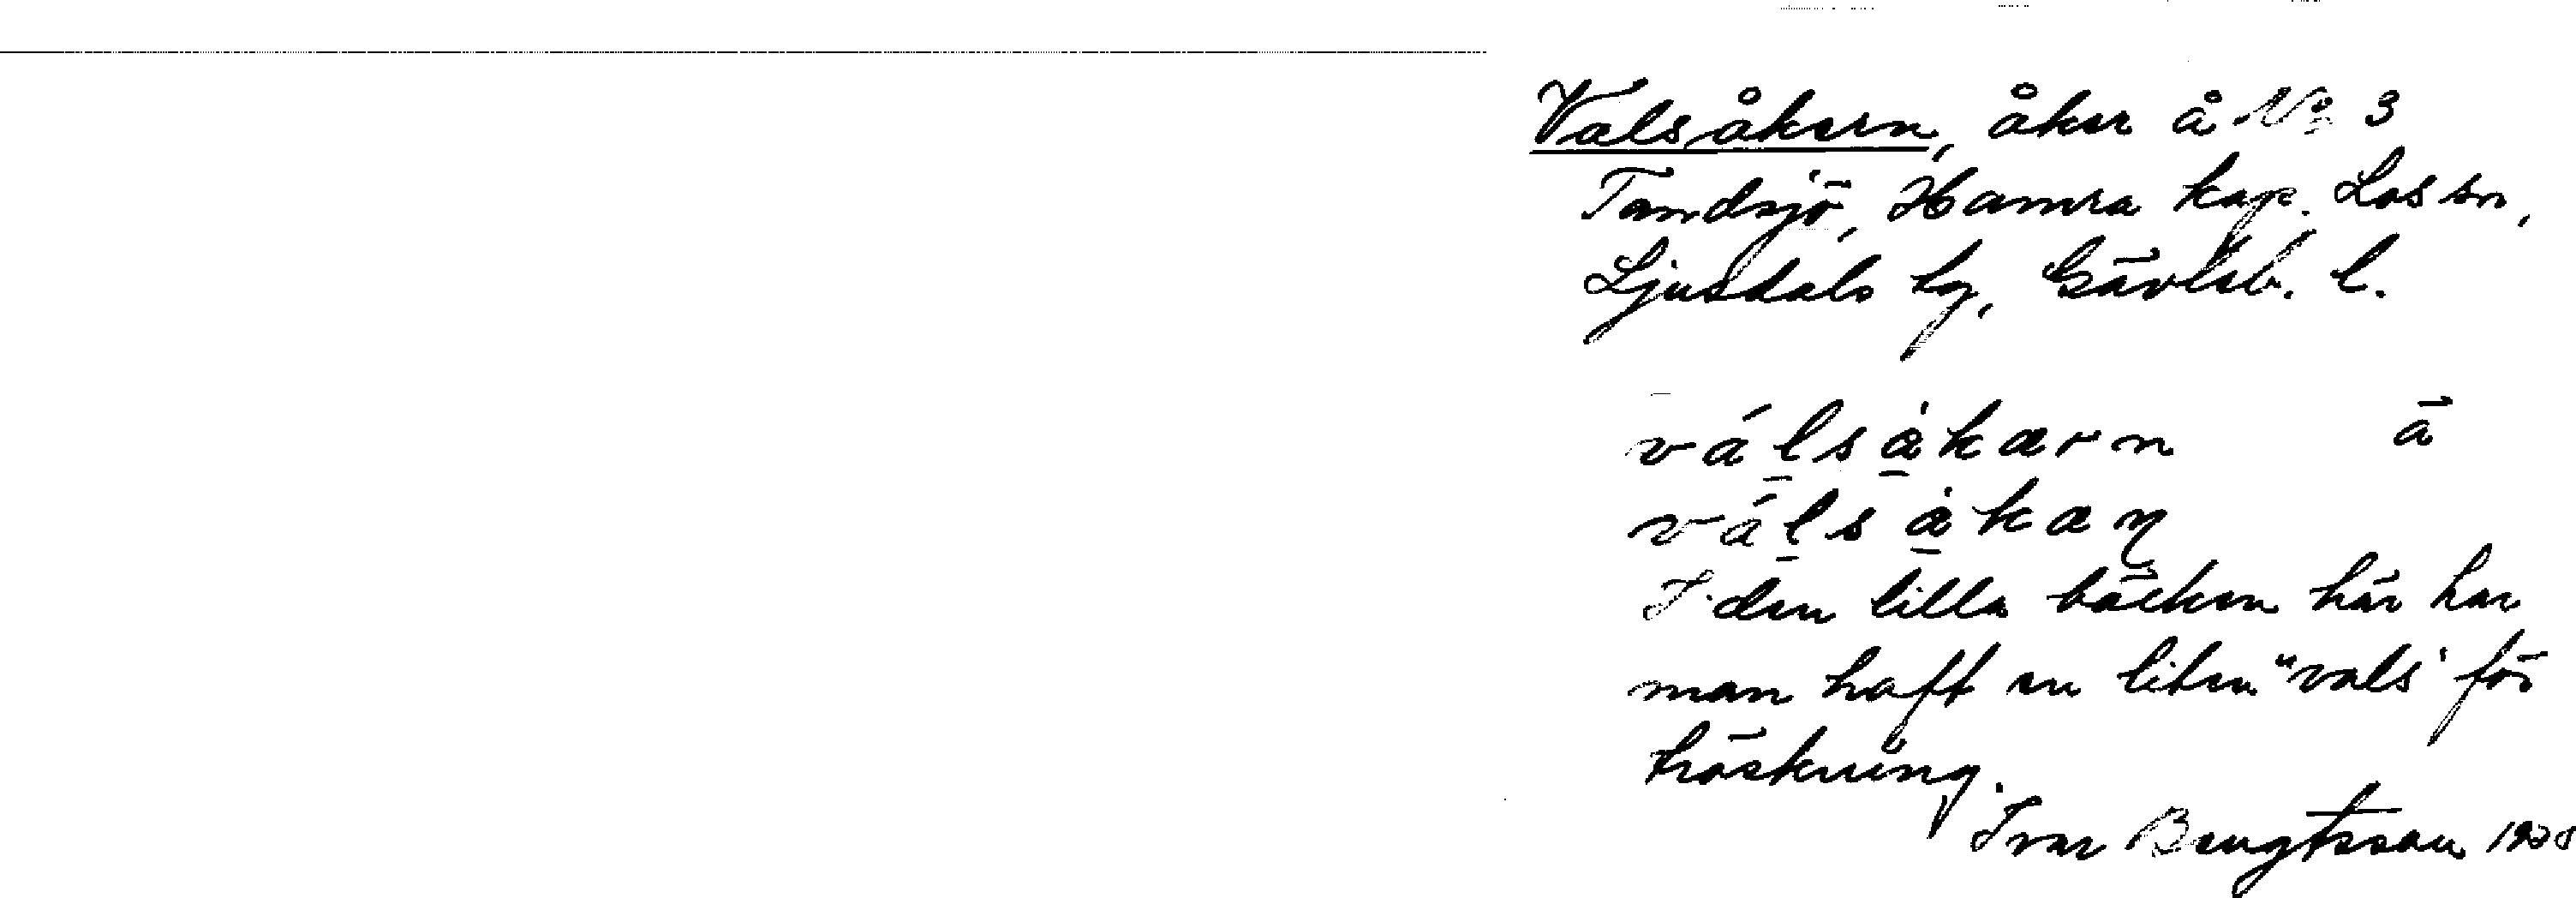 Valsåkern, åker å No 3
Tandsjö, Hamra kap. Los sn,
Ljusdals tg, Gävleb. l.
válsåkærn ā
válsåkæɳ
I den lilla bäcken här har
man haft en liten "vals" för
tröskning.
Ivar Bengtsson